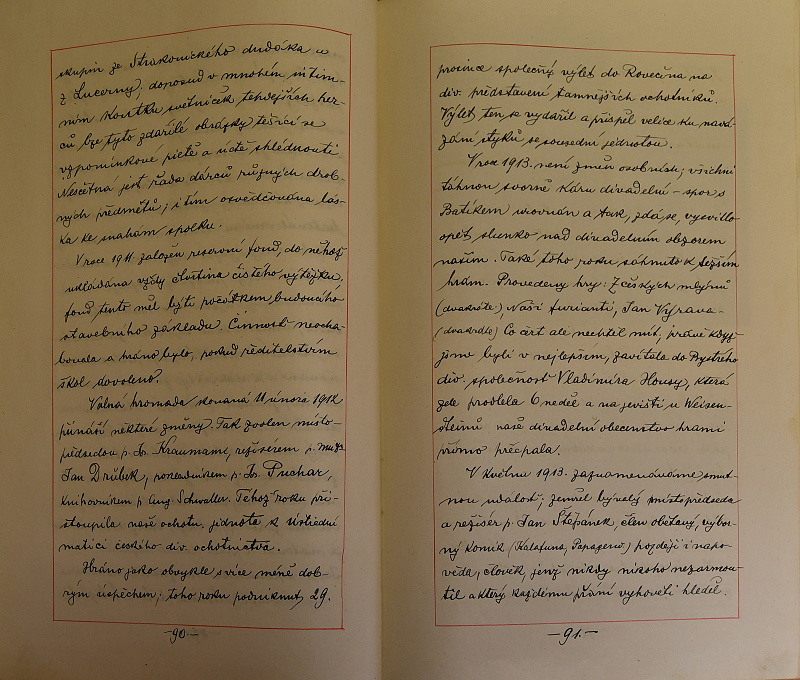 skupin ze Strakonického dudáka a
z Lucerny; doposud v mnohém intim-
ním koutku světniček tehdejších her-
ců lze tyto zdařilé obrázky těšící se
vzpomínkové pietě a úctě shlédnouti.
Nesčetná jest řada dárců různých drob-
ných předmětů; i tím osvědčována lás-
ka ke snahám spolku.
V roce 1911 založen reservní fond, do něhož
ukládána vždy čtvrtina čistého výtěžku;
fond tento měl býti počátkem budoucího
stavebního základu. Činnost neocha-
bovala a hráno bylo, pokud ředitelstvím
škol dovoleno.
Valná hromada konaná 11. února 1912
přináší některé změny. Tak zvolen místo-
předsedou p. Jos. Kraumann, režisérem p.
Jan Drůbek, pokladníkem p. Jos. Puchar,
knihovníkem p. Aug. Schwaller. Téhož roku při-
stoupila naše ochotn. jednota k Ústřední
matici českého div. ochotnictva.
Hráno jako obvykle s více méně dob-
rým úspěchem; toho roku podniknut 29.
-90-
prosince společný výlet do Rovečína na
div. představení tamnejších ochotníků.
Výlet ten se vydařil a přispěl velice ku navá-
zání styků se sousední jednotou.
V roce 1913. není změn osobních; všichni
táhnou svorně káru divadelní - spor s
Batíkem urovnán a tak, zdá se, vysvitlo
opět slunko nad divadelním obzorem
naším. Také toho roku sáhnuto k těžším
hrám. Provedeny hry: Z českých mlýnů
(dvakráte), Naši furianti, Jan Výrava
(dvakráte) Co čert ale nechtěl mít; právě když
jsme byli v nejlepším, zavítala do Bystrého
div. společnost Vladimíra Housy, která
zde prodlela 6 neděl a na jevišti u Weisen-
steinů naše divadelní obecenstvo hrami
přímo přecpala.
V květnu 1913. zaznamenáváme smut-
nou událost; zemřel bývalý místopředseda
a režisér p. Jan Štěpánek, člen obětavý, výbor-
ný komik (Kalafuna, Papageno) později i nápo-
věda, člověk, jenž nikdy nikoho nezarmou-
til a který každému přání vyhověti hleděl.
-91-